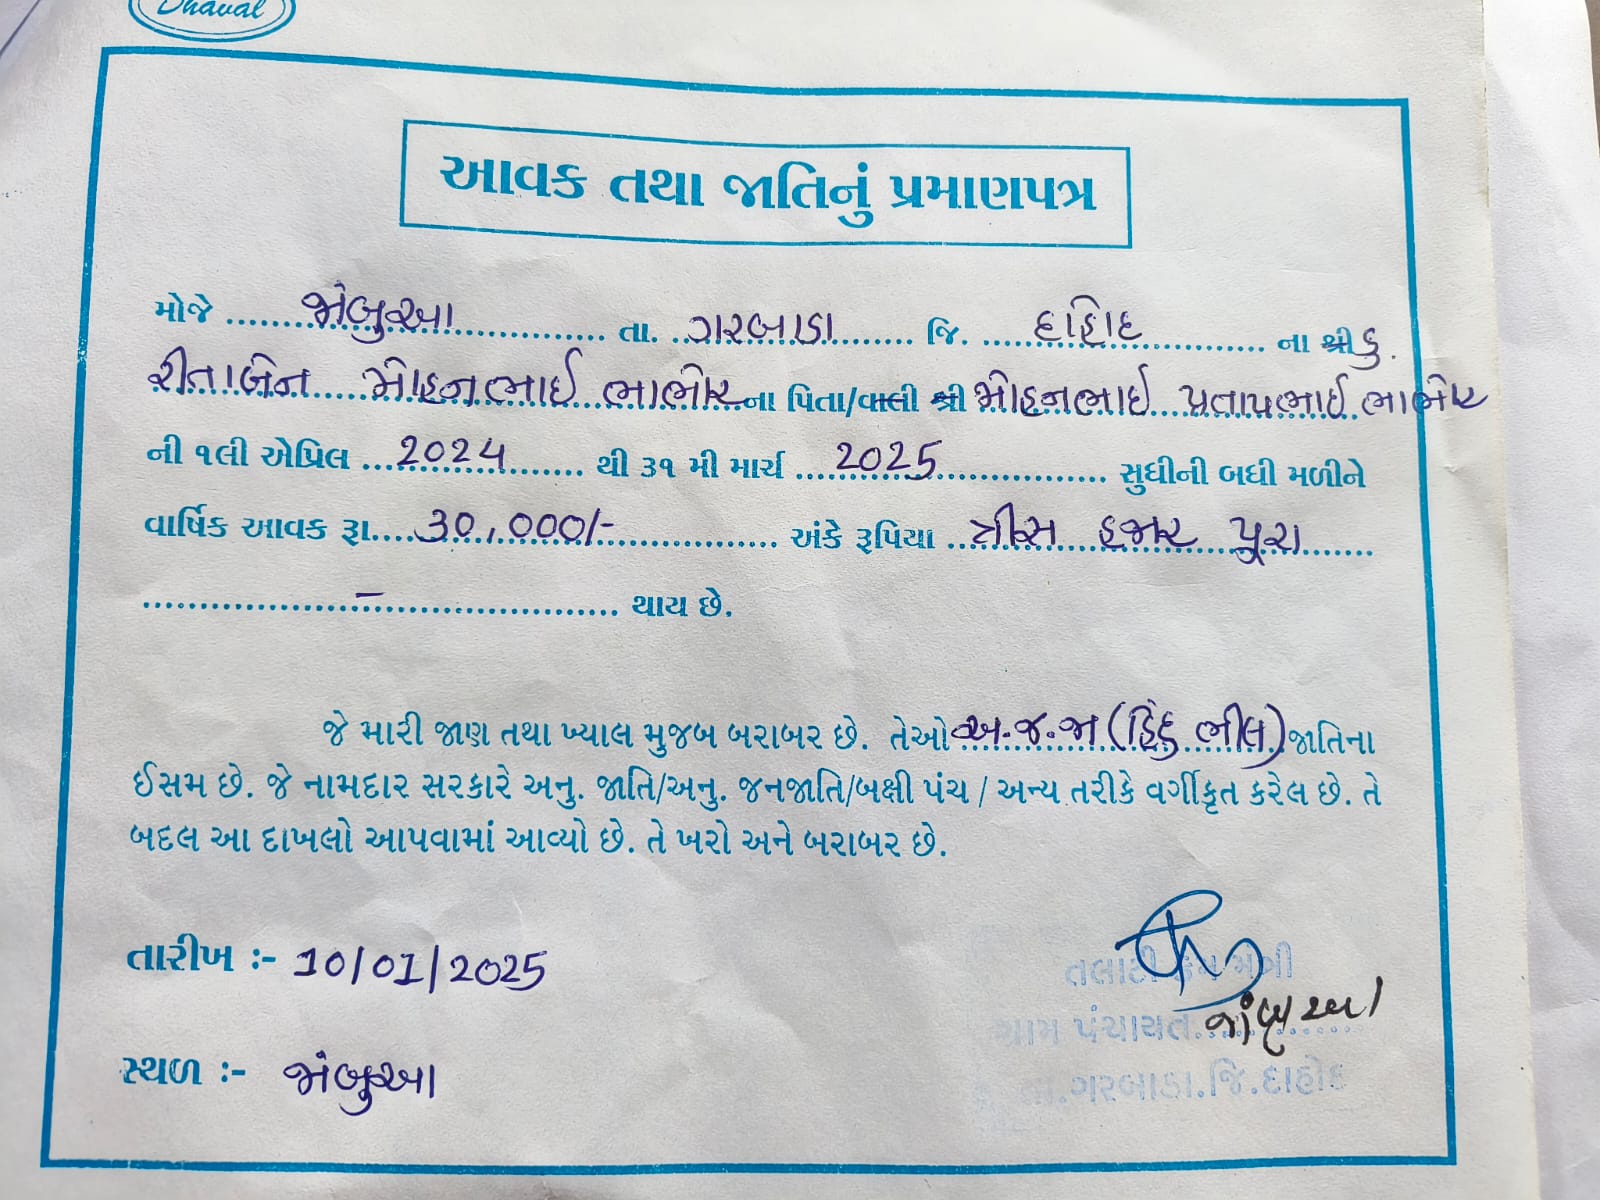 Dhaval
આવક તથા જાતિનું પ્રમાણપત્ર
મોજે જાંબુઆ તા. ગરબાડા જિ. દાહોદ ના શ્રી કુ.
રીતાબેન મોહનભાઈ ભાભોર ના પિતા/વાલી શ્રી મોહનભાઈ પ્રતાપભાઈ ભાભોર
ની ૧લી એપ્રિલ 2024 થી ૩૧ મી માર્ચ 2025 સુધીની બધી મળીને
વાર્ષિક આવક રૂા. 30,000/- અંકે રૂપિયા ત્રીસ હજાર પુરા
– થાય છે.
જે મારી જાણ તથા ખ્યાલ મુજબ બરાબર છે. તેઓ અ.જ.જા (હિંદુ ભીલ) જાતિના
ઈસમ છે. જે નામદાર સરકારે અનુ. જાતિ/અનુ. જનજાતિ/બક્ષી પંચ / અન્ય તરીકે વર્ગીકૃત કરેલ છે. તે
બદલ આ દાખલો આપવામાં આવ્યો છે. તે ખરો અને બરાબર છે.
તારીખ :- 10/01/2025
તલાટી કમ મંત્રી
ગ્રામ પંચાયત. જાંબુઆ
સ્થળ :- જાંબુઆ
તા.ગરબાડા.જિ.દાહોદ